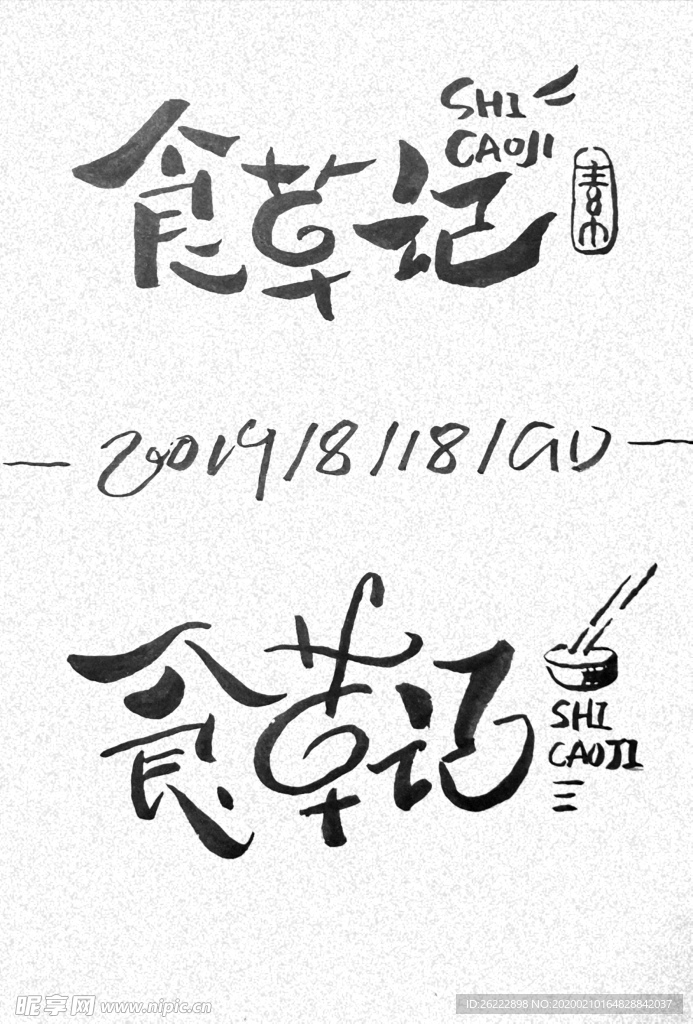 SHI
CAOJI
食草记
素
2019/8/18/GD
食草记
SHI
CAOJI
昵享网 www.nipic.cn
ID:26222898 NO:20200210164828842037